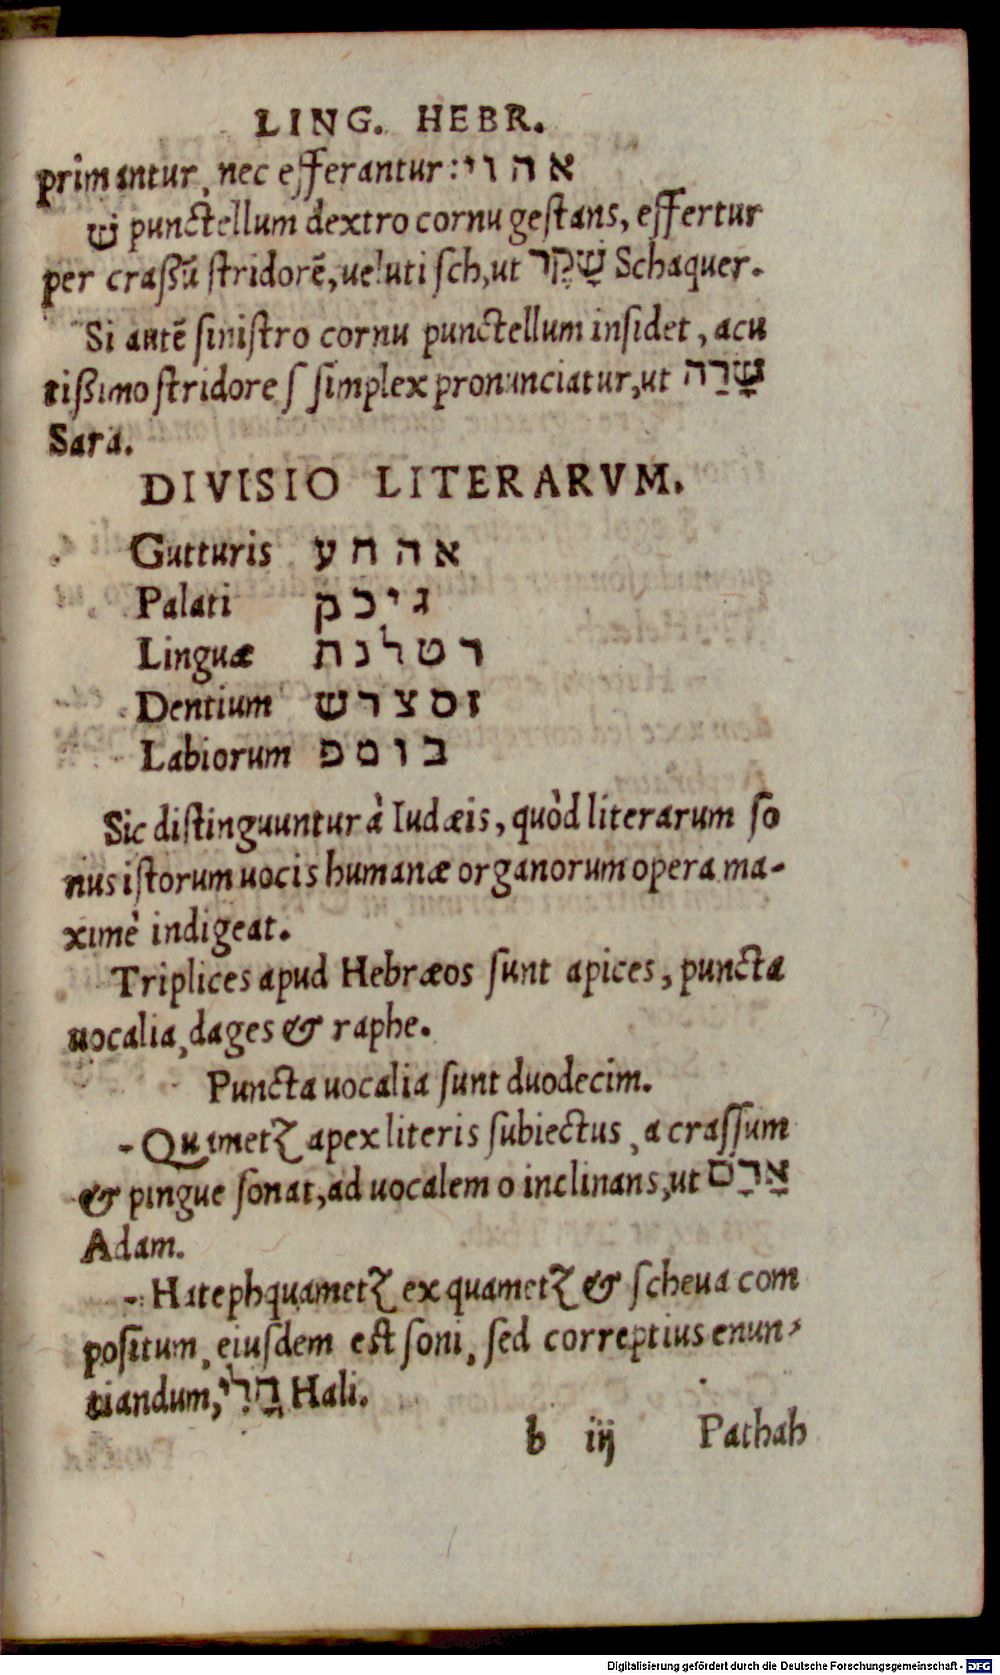 LING. HEBR.
primantur, nec efferantur: א ה ו י
שׁ punctellum dextro cornu geſtans, effertur
per craſſũ ſtridorẽ, ueluti ſch, ut שָׁקֶר Schaquer.
Si autẽ ſiniſtro cornu punctellum inſidet, acu
tißimo ſtridore ſ ſimplex pronunciatur, ut שָׂרַה
Sara.
DIVISIO LITERARVM.
Gutturis א ה ח ע
Palati ג י כ ק
Linguæ ד ט ל נ ת
Dentium ז ס צ ר ש
Labiorum ב ו מ פ
Sic diſtinguuntur à Iudæis, quòd literarum ſo
nus iſtorum uocis humanæ organorum opera ma-
ximè indigeat.
Triplices apud Hebræos ſunt apices, puncta
uocalia, dages & raphe.
Puncta uocalia ſunt duodecim.
Quametz apex literis ſubiectus, a craſſum
& pingue ſonat, ad uocalem o inclinans, ut
Adam.
Hatephquametz ex quametz & ſcheua com
poſitum, eiuſdem eſt ſoni, ſed correptius enun-
tiandum, Hali.
b iij Pathah
Digitalisierung gefördert durch die Deutsche Forschungsgemeinschaft - DFG